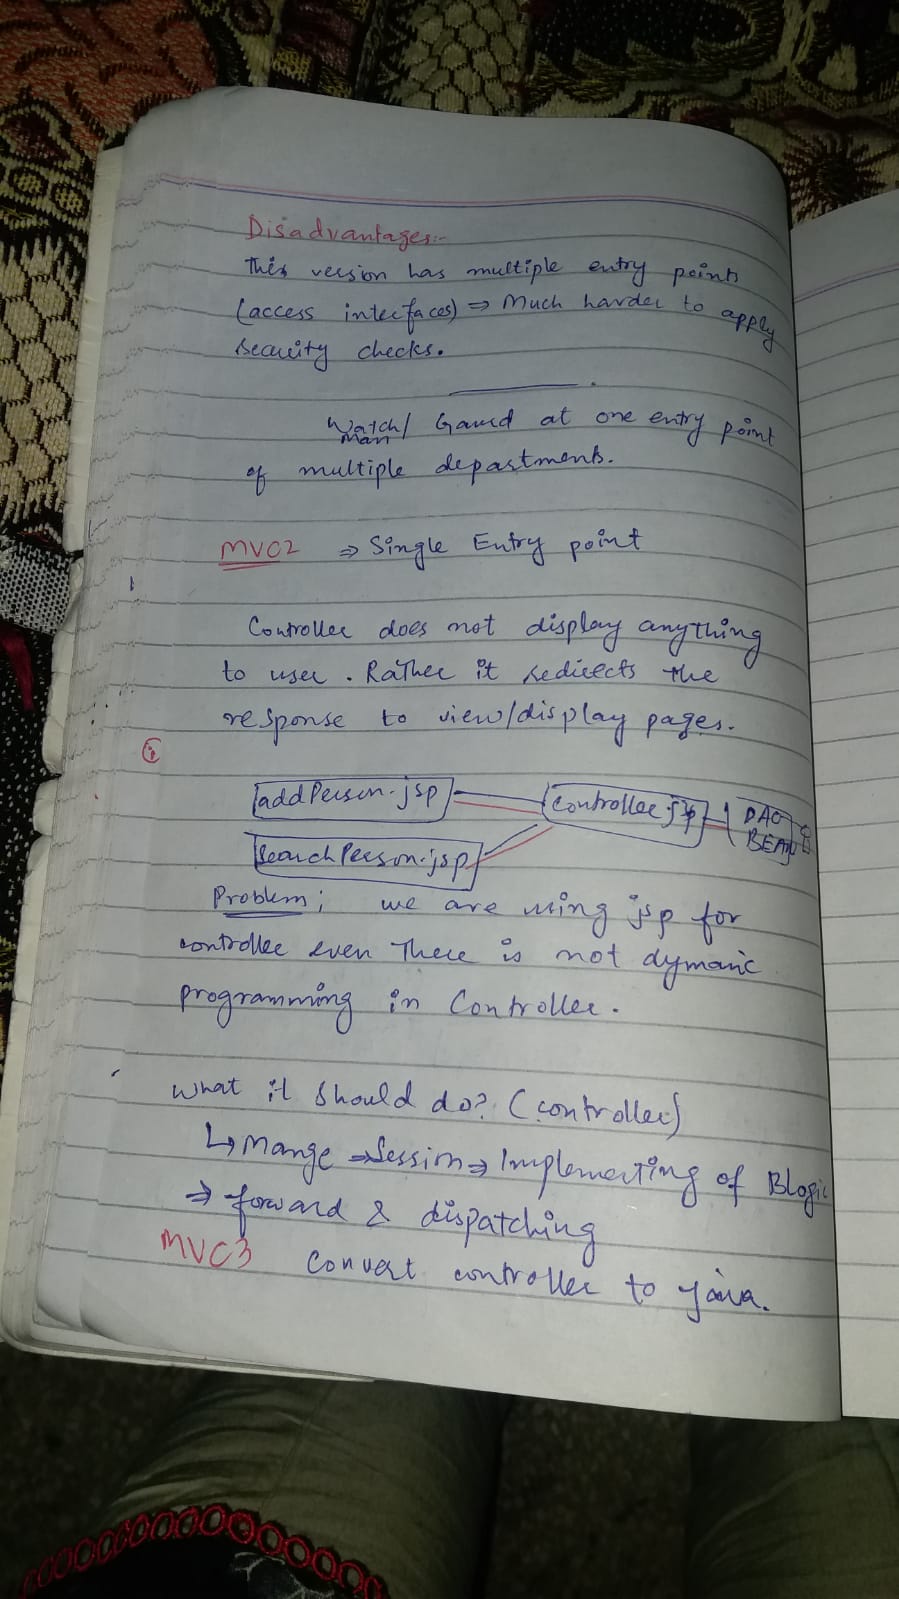 Disadvantages:-
This version has multiple entry points
(access interfaces) ⇒ Much harder to apply
security checks.
Watch/ Gaurd at one entry point
Man
of multiple departments.
MVC2 ⇒ Single Entry point
Controller does not display anything
to user. Rather it redirects the
response to view/display pages.
addPerson.jsp controller.jsp DAO
BEAN
SearchPerson.jsp
Problem; we are using jsp for
controller even There is not dymanic
programming in Controller.
What it should do? (controller)
↳ Mange ⇒ Session ⇒ Implementing of Blogic
⇒ forward & dispatching
MVC3 Convert controller to java.